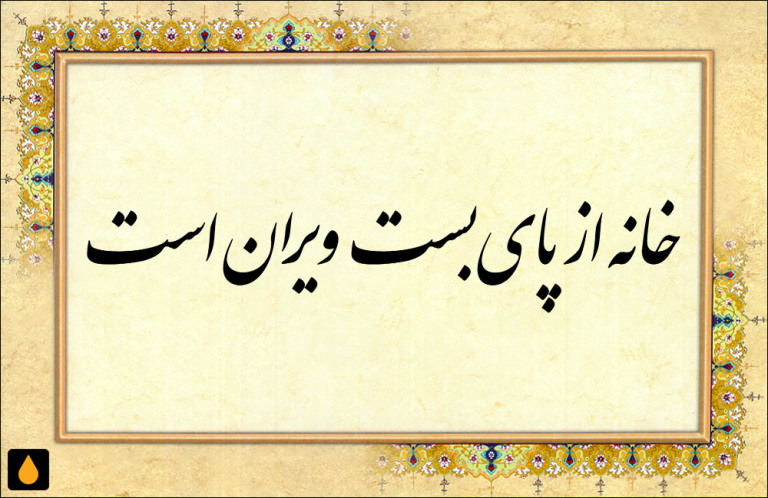 خانه از پای بست ویران است